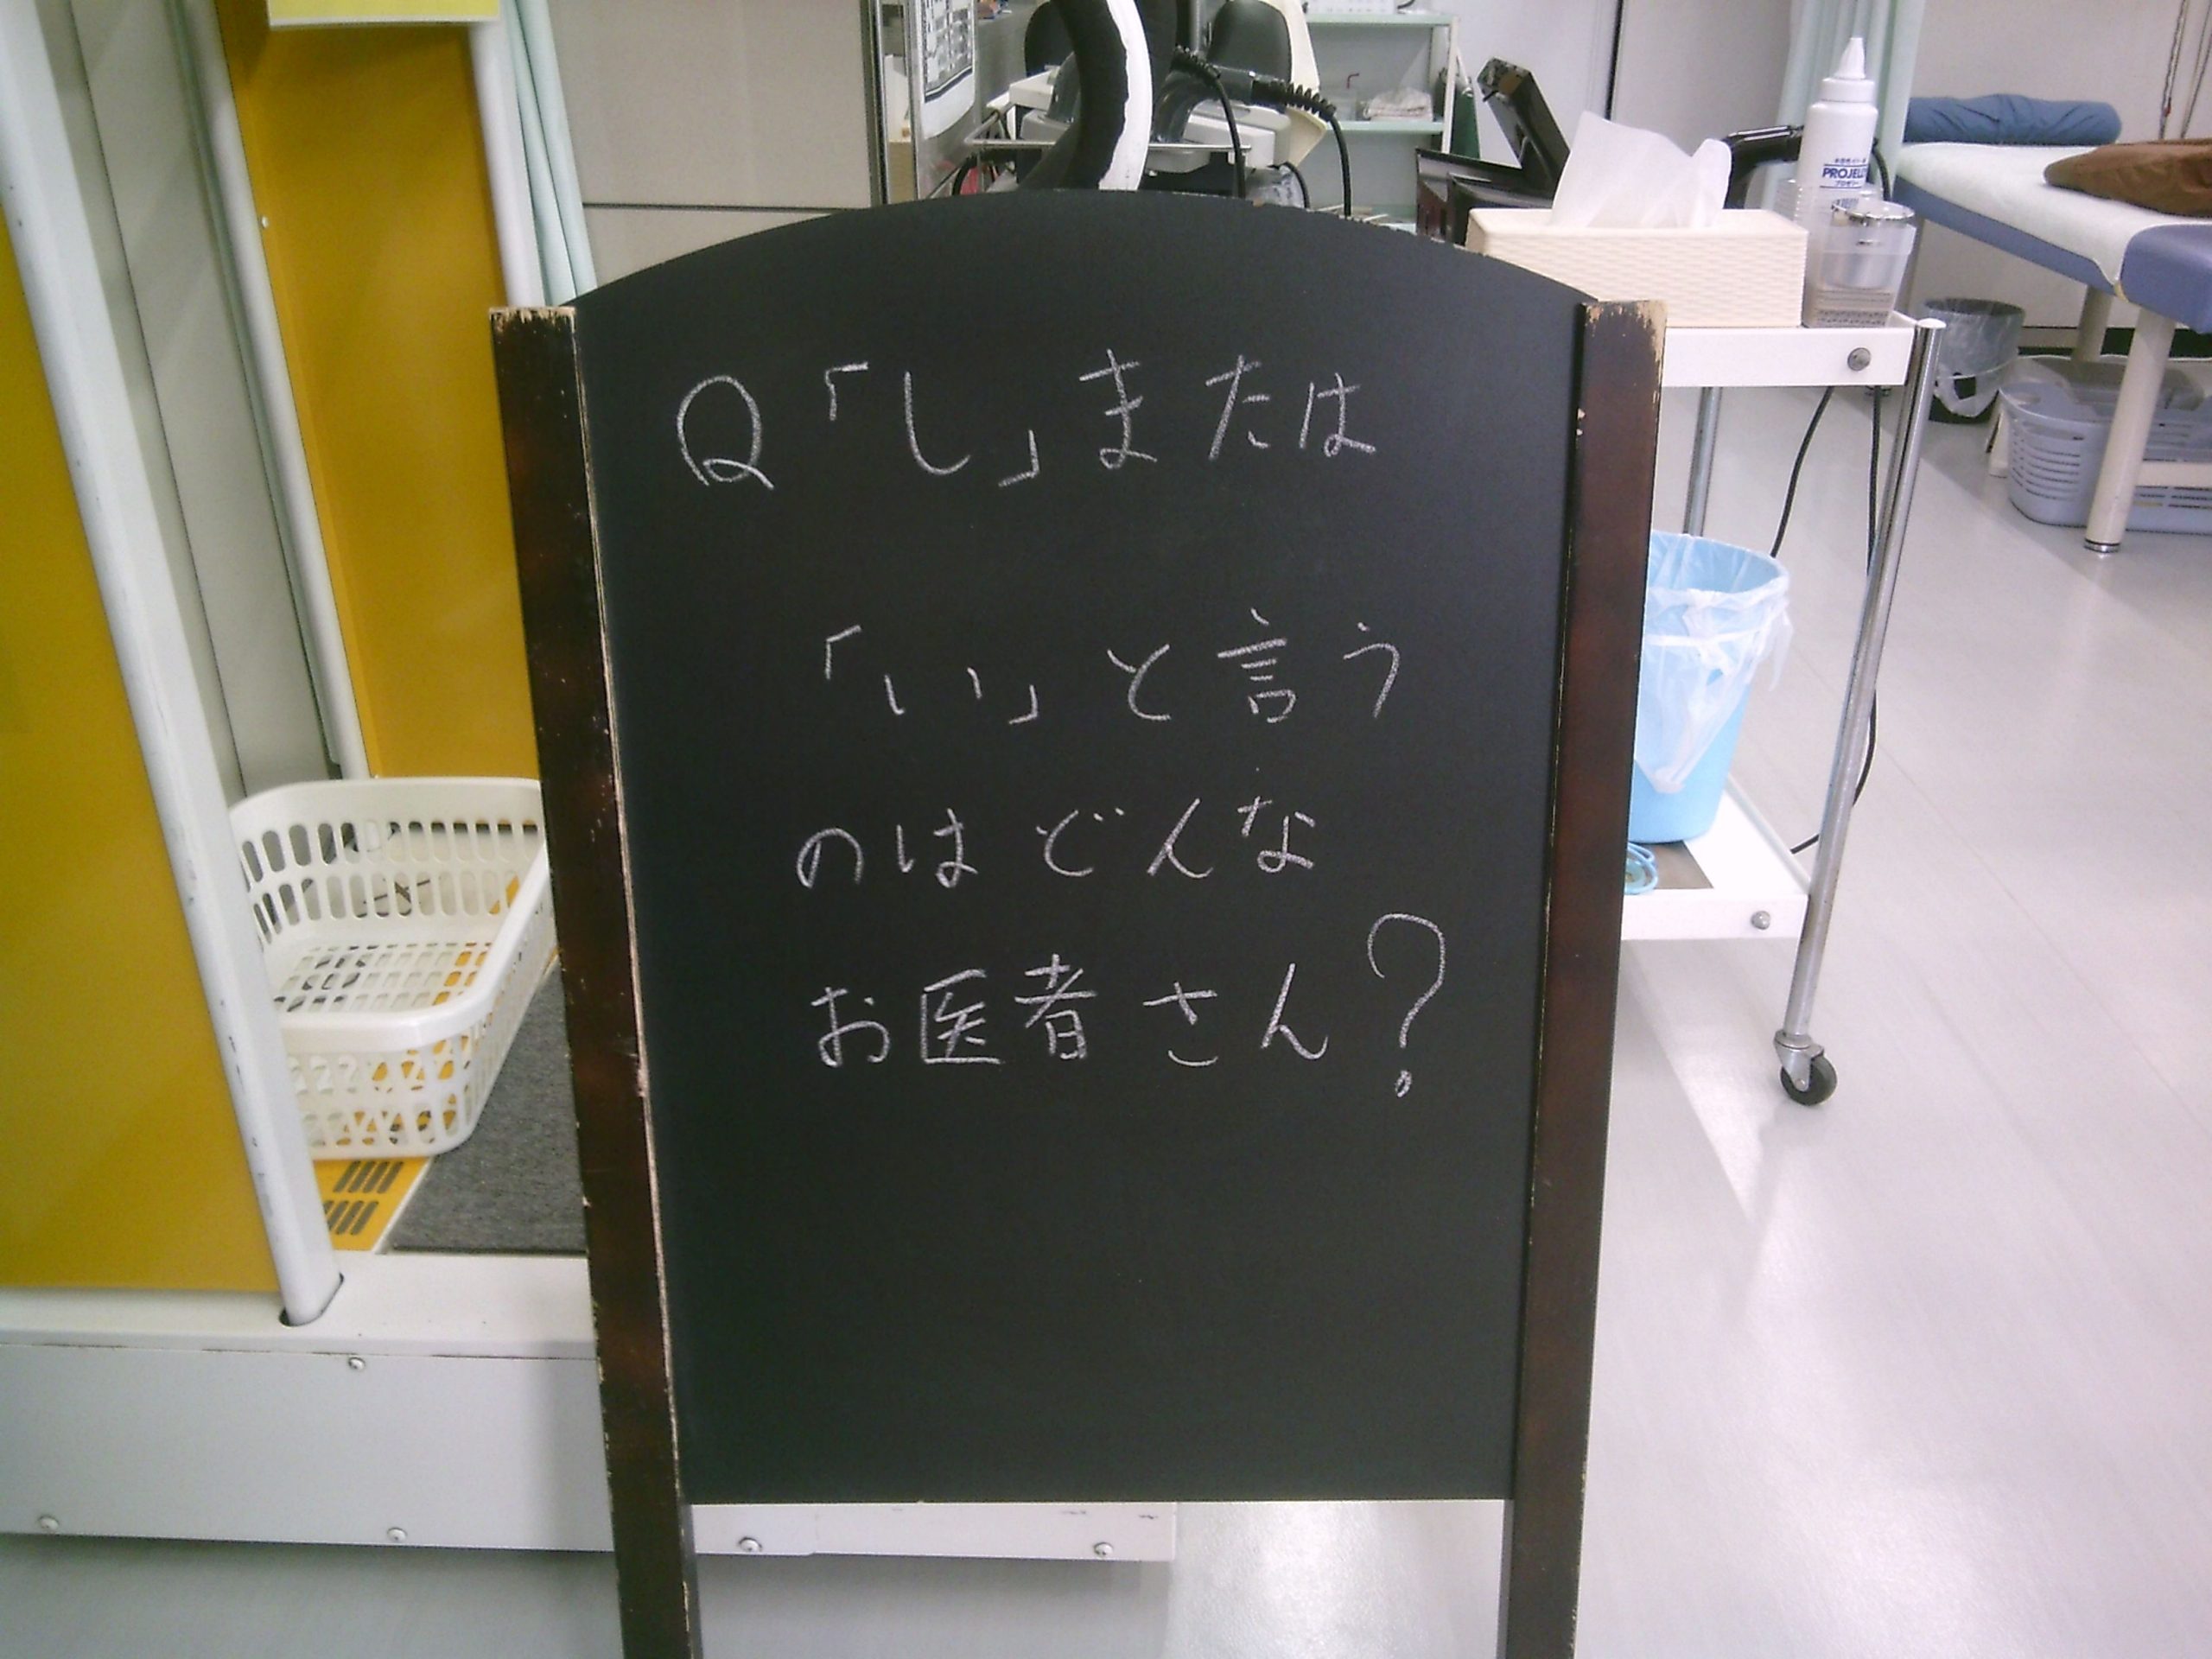 Q「し」または
「い」と言う
のはどんな
お医者さん?
PROJELLY
プロゼリー